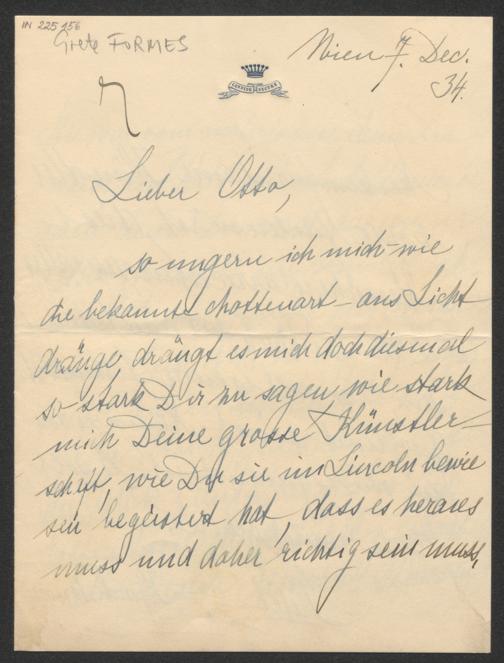 IN 225 156
Grete FORMES
Wien 7. Dec.
34.
Lieber Otto,
so ungern ich mich – wie
die bekannte Mottenart – ans Licht
dränge, drängt es mich doch diesmal
so stark Dir zu sagen wie stark
mich Deine grosse Künstler-
schaft, wie Du sie im Lincoln bewie
sen begeistert hat, dass es heraus
muss und daher richtig sein muss,